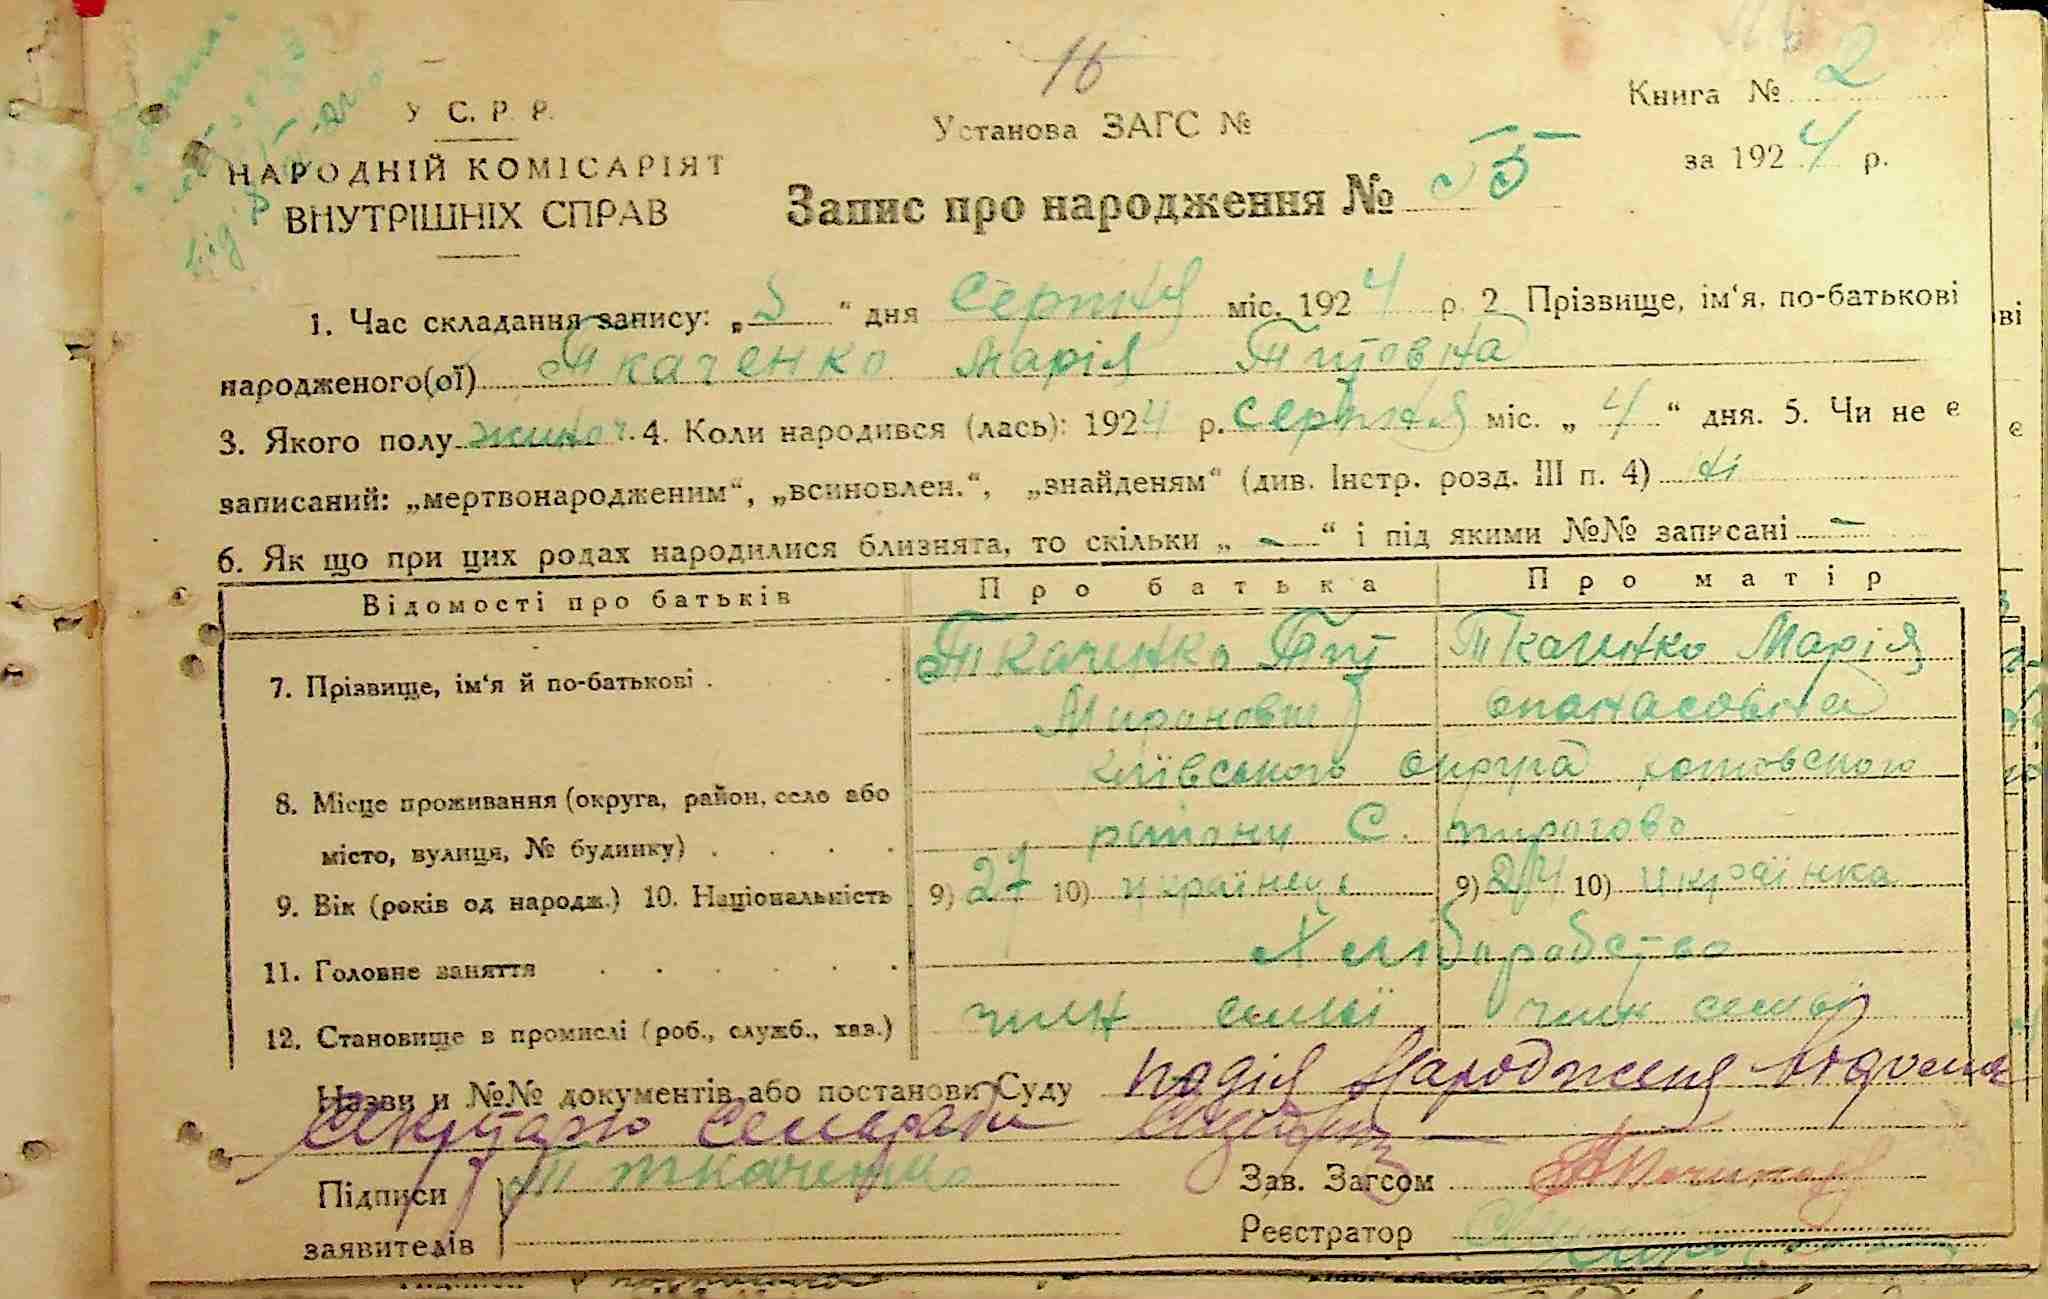 16
Книга № 2
У С. Р. Р.
Установа ЗАГС №
за 1924 р.
НАРОДНІЙ КОМІСАРІЯТ
ВНУТРІШНІХ СПРАВ
Запис про народження № 55
1. Час складання запису: „5“ дня Серпня міс. 1924 р. 2 Прізвище, ім‘я, по-батькові
народженого(ої) Ткаченко Марія Титовна
3. Якого полу жиноч. 4. Коли народився (лась): 1924 р. серпня міс. „4“ дня. 5. Чи не є
записаний: „мертвонародженим“, „всиновлен.“, „знайденям“ (див. Інстр. розд. III п. 4) ні
6. Як що при цих родах народилися близнята, то скільки „ - “ і під якими №№ записані -
Відомості про батьків Про батька Про матір
7. Прізвище, ім‘я й по-батькові . Ткаченко Тит Ткаченко Марія
Миранович Опанасовна
8. Місце проживання (округа, район, село або Київського округа хотовского
місто, вулиця, № будинку) . . . . району С. пирогово
9. Вік (років од народж.) 10. Національність 9) 27 10) українець 9) 24 10) українка
11. Головне заняття . . . . . Хліборобство
12. Становище в промислі (роб., служб., хаз.) член семьї член семьї
Назви и №№ документів або постанови Суду подія Народженя відома
секрітарю Сельради
Підписи Т Ткаченко Зав. Загсом
заявителів Реєстратор